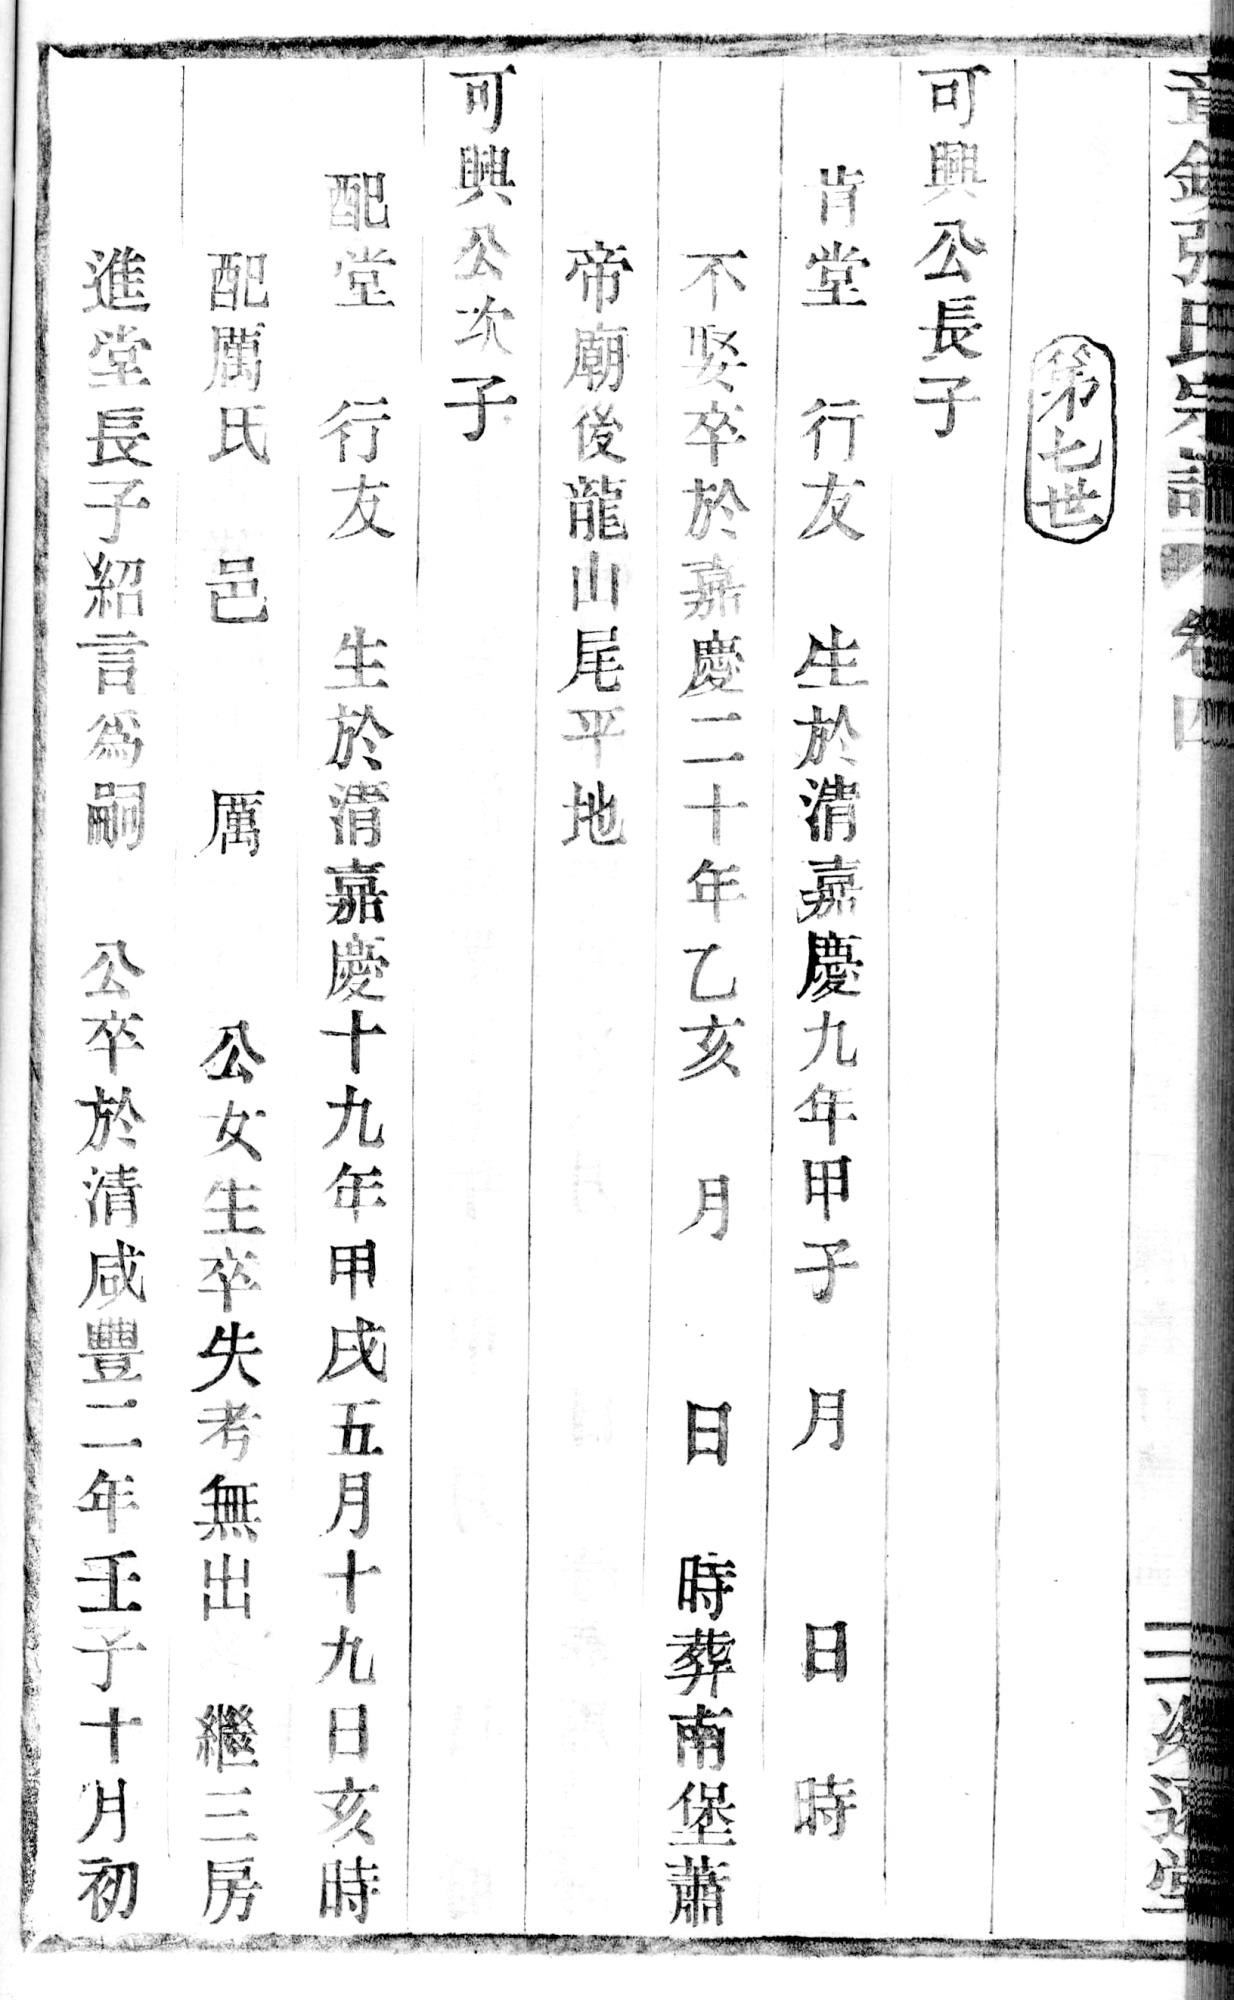 張氏宗譜 卷四 二
第七世
可興公長子
肯堂 行友 生於清嘉慶九年甲子 月 日 時
不娶卒於嘉慶二十年乙亥 月 日 時葬南堡蕭
帝廟後龍山尾平地
可興公次子
配堂 行友 生於清嘉慶十九年甲戌五月十九日亥時
配厲氏 邑 厲 公女生卒失考無出 繼三房
進堂長子紹言為嗣 公卒於清咸豐二年壬子十月初